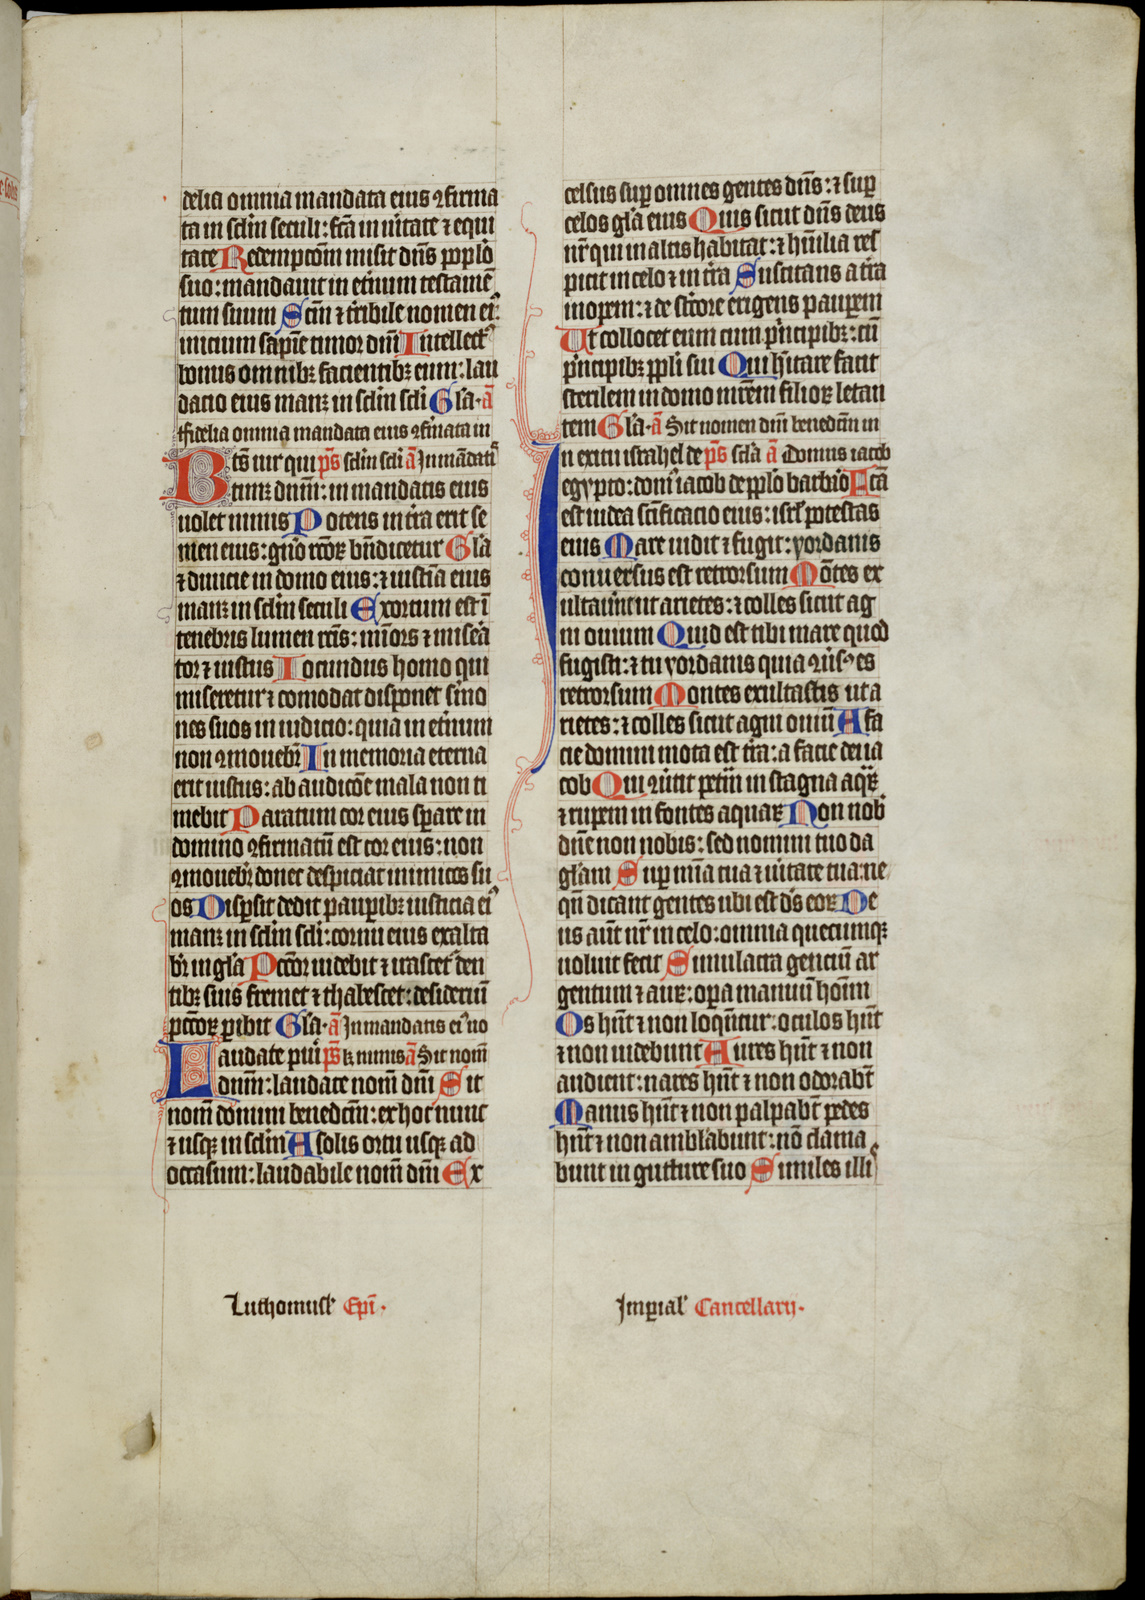 delia omnia mandata eius ꝯfirma
ta in sclm̄ seculi: fc̄a in ūitate ⁊ equi
tate Redempcōm misit dn̄s pop̄lo
suo: mandauit in et̄num testamē
tum suum Scm̄ ⁊ t̄ribile nomen eiꝰ:
inicium sapīe timor dn̄i Intellectꝰ
bonus omnibꝫ facientibꝫ eum: lau
dacio eius manꝫ in sclm̄ scl̄i Gl̄a· a
ffidelia omnia mandata eius ꝯfirmata in
Bt̄s uir qui ps̄ sclm̄ scl̄i a In mādatꝭ
tīmꝫ dnm̄: in mandatis eius
uolet nimis Potens in t̄ra erit se
men eius: gn̄o rc̄oꝝ bn̄dicetur Gl̄a
⁊ diuicie in domo eius: ⁊ iustīa eius
manꝫ in sclm̄ seculi Exortum est ī
tenebris lumen rc̄is: mīors ⁊ misēa
tor ⁊ iustus Iocundus homo qui
miseretur ⁊ comodat disponet s̄mo
nes suos in iudicio: quia in et̄num
non ꝯmouebr̄ In memoria eterna
erit iustus: ab audicōe mala non ti
mebit Paratum cor eius sp̄are in
domino ꝯfirmatū est cor eius: non
ꝯmouebr̄ donec despiciat inimicos su
os Disp̄sit dedit paup̄ibꝫ iusticia eiꝰ
manꝫ in sclm̄ scl̄i: cornu eius exalta
br̄ in gl̄a Pcc̄or uidebit ⁊ irascet̄ den
tibꝫ suis fremet ⁊ thabescet: desideriū
pcc̄oꝝ p̄ibit Gl̄a· a In mandatis eiꝰ uo
Laudate pūi ps̄ k nimis a Sit nom̄
dnm̄: laudate nom̄ dn̄i Sit
nom̄ domini benedictm̄: ex hoc nunc
⁊ usqꝫ in sclm̄ A solis ortu usqꝫ ad
occasum: laudabile nom̄ dn̄i Ex
celsus sup̄ omnes gentes dn̄s: ⁊ sup̄
celos gl̄a eius Quis sicut dn̄s deus
nr̄ qui in altis habitat: ⁊ hūilia res
picit in celo ⁊ in t̄ra Suscitans a t̄ra
inopem: ⁊ de st̄core erigens paup̄em
Ut collocet eum cum p̄ncipibꝫ: cū
p̄ncipibꝫ pp̄li sui Qui h̄itare facit
sterilem in domo mr̄em filioꝝ letan
tem Gl̄a· a Sit nomen dn̄i benedictm̄ in
In exitu israhel de ps̄ scl̄a a Domus iacob
egypto: domꝰ iacob de pp̄lo barb̄io Fc̄a
est iudea scīficacio eius: isrl̄ potestas
eius Mare uidit ⁊ fugit: yordanis
conuersus est retrorsum Mōtes ex
ultauīnt ut arietes: ⁊ colles sicut ag
ni ouium Quid est tibi mare quod
fugisti: ⁊ tu yordanis quia ꝯūsꝰ es
retrorsum Montes exultastis ut a
rietes: ⁊ colles sicut agni ouiū A fa
cie domini mota est t̄ra: a facie dei ia
cob Qui ꝯūtit pet̄m in stagna aqꝝ
⁊ rupem in fontes aquaꝝ Non nob̄
dn̄e non nobis: sed nomini tuo da
gl̄am Sup̄ mīa tua ⁊ ūitate tua: ne
qn̄ dicant gentes ubi est ds̄ eoꝝ De
us aūt nr̄ in celo: omnia quecumqꝫ
uoluit fecit Simulacra genciū ar
gentum ⁊ auꝝ: op̄a manuū hoīm
Os hn̄t ⁊ non loqn̄tur: oculos hn̄t
⁊ non uidebunt Aures hn̄t ⁊ non
audient: nares hn̄t ⁊ non odorabt̄
Manus hn̄t ⁊ non palpabt̄ pedes
hn̄t ⁊ non ambl̄abunt: nō clama
bunt in gutture suo Similes illiꝰ
Luthomuslꝰ Ep̄i·
Imp̄ialꝰ Cancellarij·